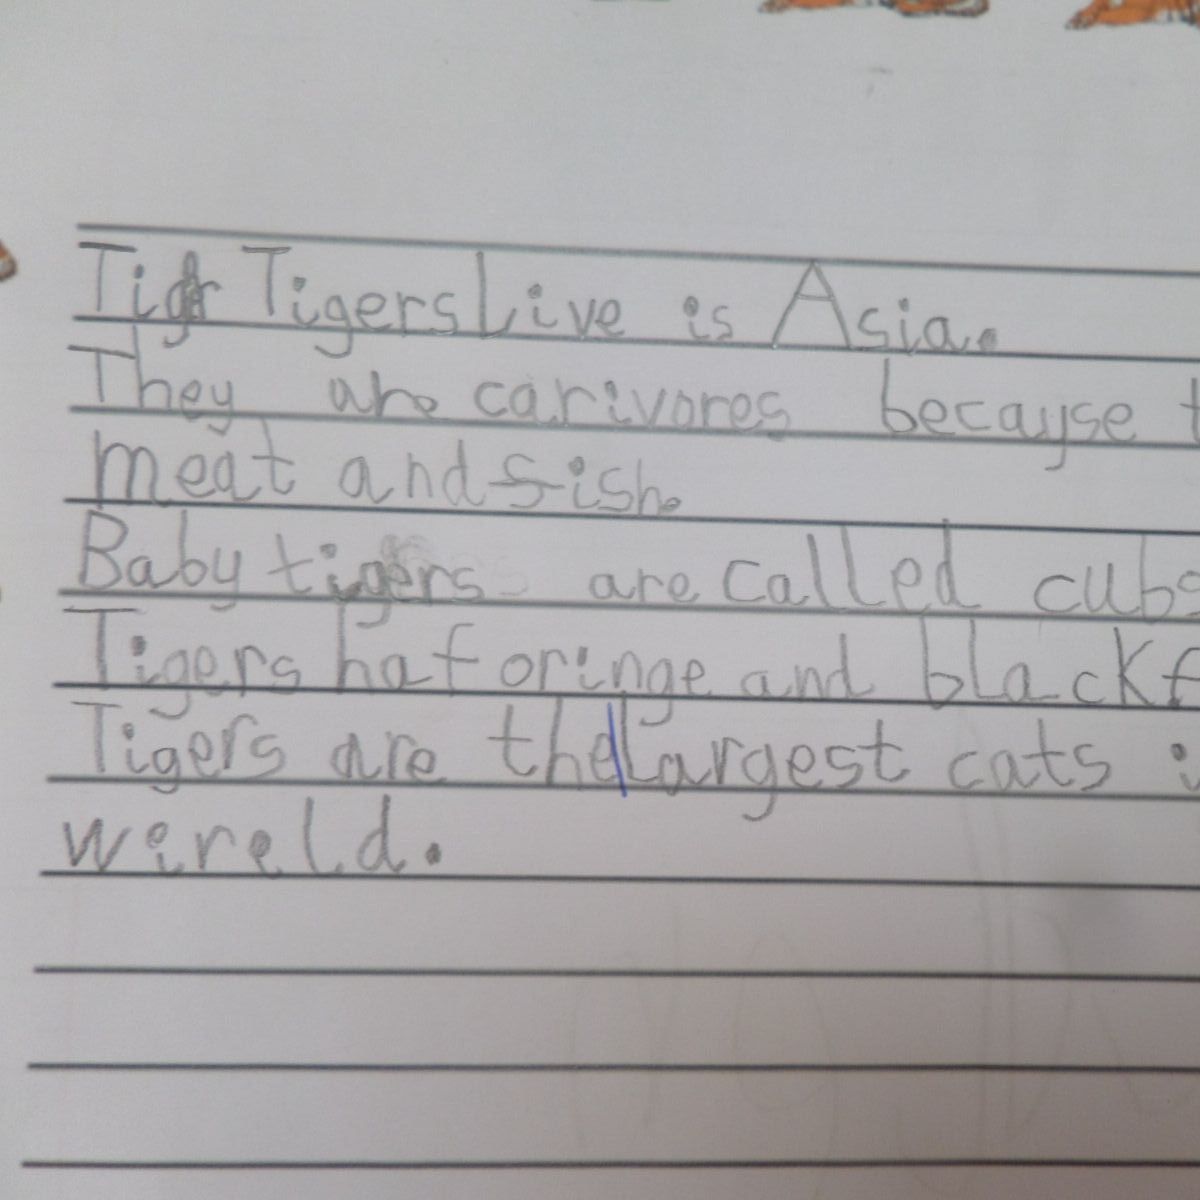 Tigr Tigers Live is Asia.
They are carivores becayse t
meat and fish.
Baby tigers are called cubs
Tigers haf oringe and black f
Tigers are the largest cats i
wireld.